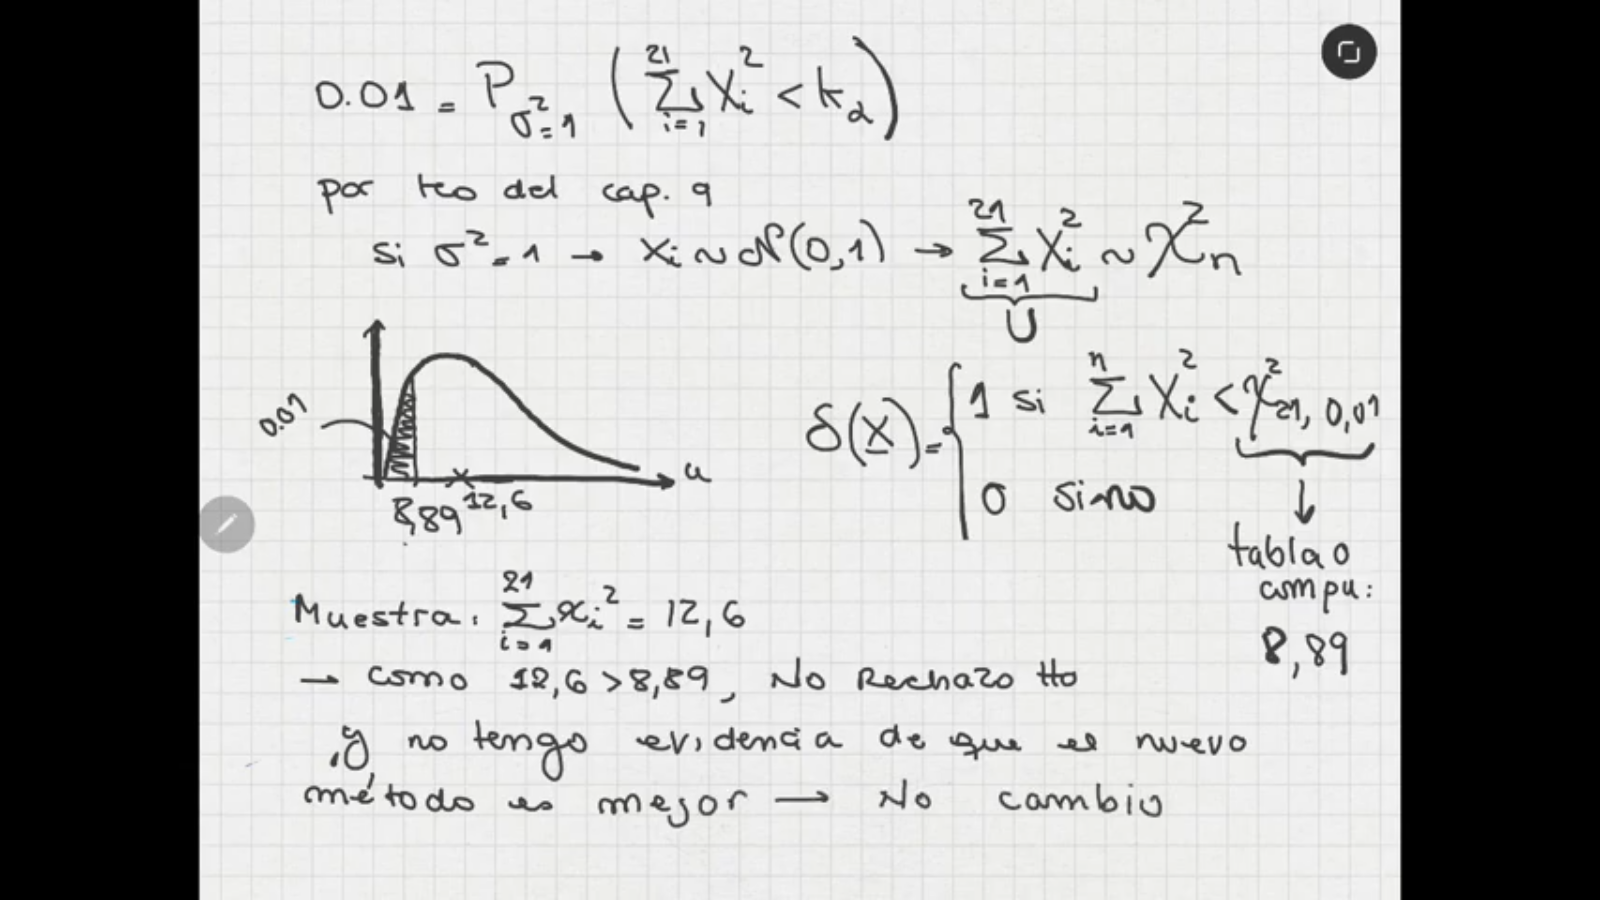 0.01 = P_{σ²=1} ( ∑_{i=1}^{21} X_i² < k_α )
por teo del cap. 9
si σ² = 1 → X_i ~ N(0,1) → ∑_{i=1}^{21} X_i² ~ χ²_n
U
0.01
u
8,89 12,6
δ(X) = { 1 si ∑_{i=1}^{n} X_i² < χ²_{21, 0,01}
0 sino
tabla o
compu:
8,89
Muestra: ∑_{i=1}^{21} x_i² = 12,6
→ como 12,6 > 8,89, No Rechazo Ho
, y no tengo evidencia de que el nuevo
método es mejor → No cambio